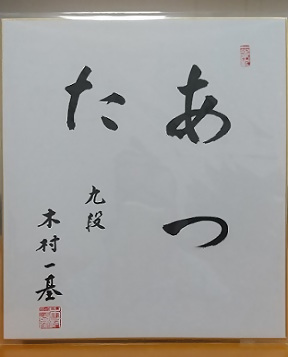 あつ
た
九段
木村一基